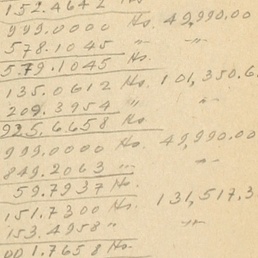 152.4642 Hs.
999.0000 Hs. 49,990.00
578.1045 " "
579.1045 Hs.
135.0612 Hs. 101,350.6
209.3954 " "
925.6658 Hs.
999.0000 Hs. 49,990.00
849.2063 " "
59.7937 Hs.
151.7300 Hs. 131,517.3
153.4958 " "
001.7658 Hs.